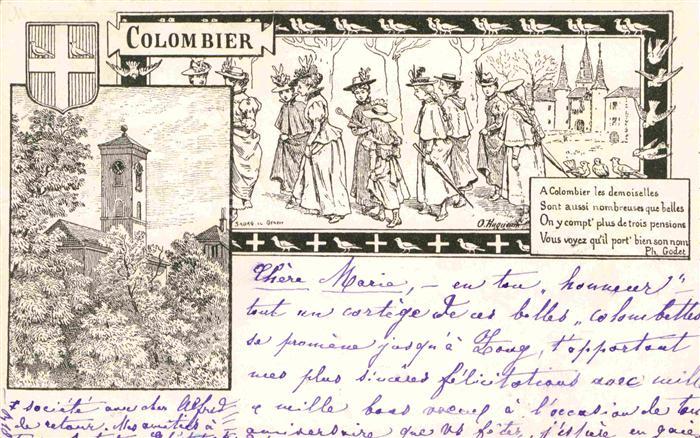 COLOMBIER
A Colombier les demoiselles
Sont aussi nombreuses que belles
On y compt' plus de trois pensions
Vous voyez qu'il port' bien son nom
Ph. Godet
Chère Marie, — en ton „honneur"
tout un cortège de ces belles „colombelles
se promène jusqu'à Zoug, t'apportant
mes plus sincères félicitations avec mill
e mille bons voeux à l'occasion de ton
anniversaire que
société avec cher Alfred
de retour. Mes amitiés à